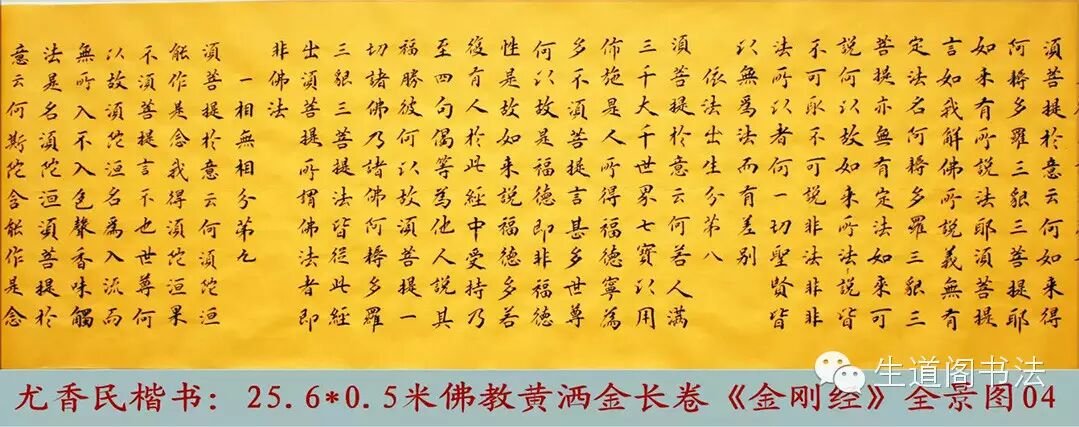 須菩提於意云何如来得
阿耨多羅三藐三菩提耶
如来有所說法耶須菩提
言如我解佛所說義無有
定法名阿耨多羅三藐三
菩提亦無有定法如來可
說何以故如来所法說皆
不可取不可說非法非非
法所以者何一切聖賢皆
以無為法而有差别
依法出生分第八
須菩提於意云何若人滿
三千大千世界七寶以用
佈施是人所得福德寧為
多不須菩提言甚多世尊
何以故是福德即非福德
性是故如来說福德多若
復有人於此經中受持乃
至四句偈等為他人說其
福勝彼何以故須菩提一
切諸佛乃諸佛阿耨多羅
三藐三菩提法皆從此經
出須菩提所謂佛法者即
非佛法
一相無相分第九
須菩提於意云何須陀洹
能作是念我得須陀洹果
不須菩提言不也世尊何
以故須陀洹名為入流而
無所入不入色聲香味觸
法是名須陀洹須菩提於
意云何斯陀含能作是念
生道阁书法
尤香民楷书：25.6*0.5米佛教黄洒金长卷《金刚经》全景图04